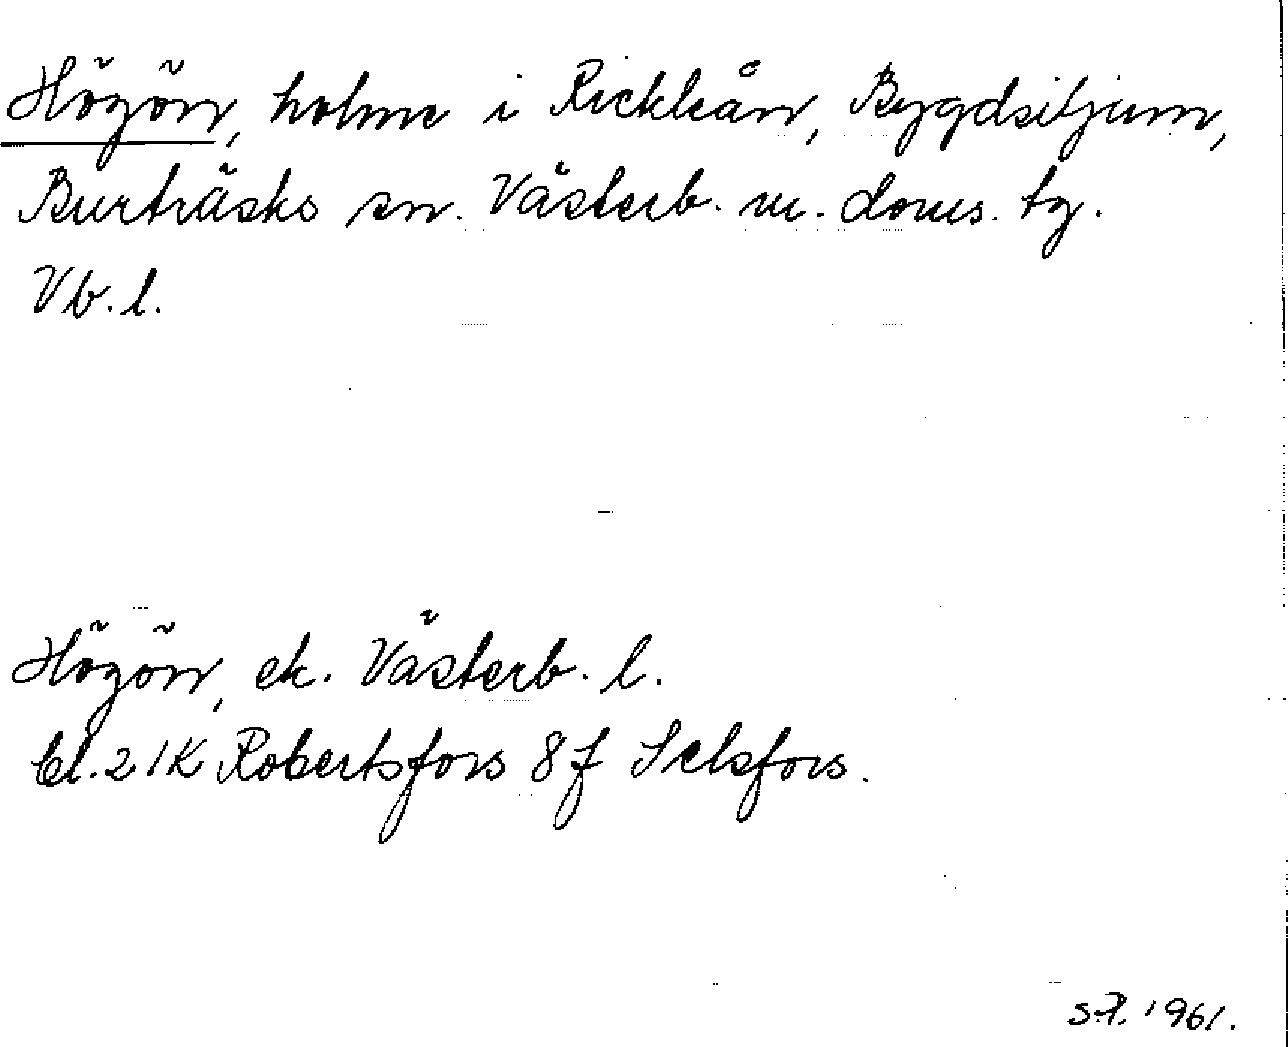 Högön, holme i Rickleån, Bygdsiljum,
Burträsks sn. Västerb. m. doms. tg.
Vb. l.
Högön, ek. Västerb. l.
bl. 21K Robertsfors 8f Selsfors.
S.P. 1961.